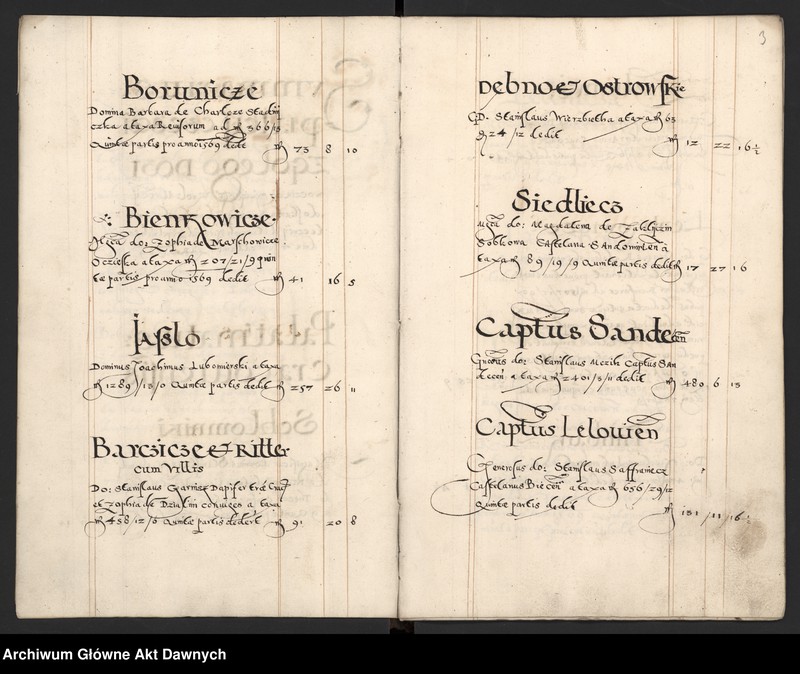 Borunicze
Domina Barbara de Charbcze Stadni
czka a taxa Reuisorum ad mr 366/13
Quintæ partis pro anno 1569 dedit mr 73 8 10
Bienkowicze
do: Zophia de Marschowicze
a taxa mr 207/21/9 quin
tæ partis pro anno 1569 dedit mr 41 16 5
Jasslo
Dominus Joachimus Lubomierski a taxa
mr 1289/13/0 Quintæ partis dedit mr 257 26 11
Barczicze et Ritter
cum villis
Do: Stanislaus Dapifer
et Zophia de Dzialin coniuges a taxa
mr 458/12/0 Quintæ partis dederunt mr 91 20 8
3
Debno et Ostrowskie
GD. Stanislaus Wierzbietha a taxa mr 63
g 24/12 dedit
mr 12 22 16 1/2
Siedliecz
do: Magdalena de Zaklyczin
Sobkowa Castelana Sandomirien a
taxa mr 89/19/9 Quintæ partis dedit mr 17 27 16
Capttus Sandecen
Gnosus do: Stanislaus Mezik Capttus San
decen a taxa mr 2401/3/11 dedit mr 480 6 13
Capttus Lelouien
Generosus do: Stanislaus Saffraniecz
Castelanus Biecen a taxa mr 656/29/12
Quintæ partis dedit mr 131/11/16
Archiwum Główne Akt Dawnych